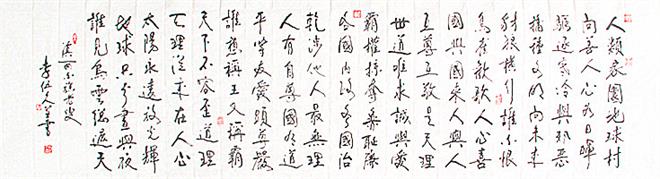 人類家園地球村
向善人心為日暉
驅逐寒冷與邪惡
播種文明向未来
豺狼橫行誰不恨
鳥雀歡歌人心喜
國與國来人與人
互尊互敬是天理
世道唯求誠與愛
霸權掠奪最恥辱
各國内政各國治
乾涉他人最無理
人有自尊國有道
平等友愛頭尊嚴
誰想稱王又稱霸
天下不容歪道理
公理從来在人心
太陽永遠放光輝
地球只分晝與夜
誰見烏雲總遮天